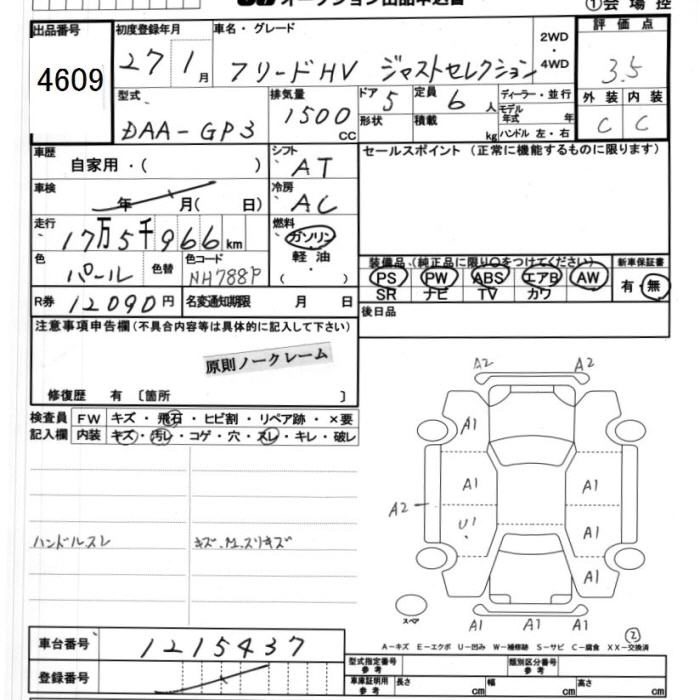 オークション出品申込書
①会場控
出品番号 4609
初度登録年月 27 1月
車名・グレード フリードHV ジャストセレクション
2WD・4WD
評価点 3.5
外装 内装
C C
型式 DAA-GP3
排気量 1500 cc
ドア 5
形状
定員 6 人
積載 kg
ディーラー・並行
モデル年式 年
ハンドル 左・右
車歴 自家用・( )
シフト AT
セールスポイント (正常に機能するものに限ります)
車検 年 月( 日)
冷房 AC
走行 17万5千966km
燃料 ガソリン・軽油・( )
色 パール 色替
色コード NH788P
装備品 (純正品に限り○をつけてください)
PS PW ABS エアB AW
SR ナビ TV カワ
新車保証書 有・無
R券 12090円
名変通知期限 月 日
後日品
注意事項申告欄 (不具合内容等は具体的に記入して下さい)
原則ノークレーム
修復歴 有 〔箇所 〕
検査員記入欄
FW キズ・飛石・ヒビ割・リペア跡・×要
内装 キズ・汚レ・コゲ・穴・スレ・キレ・破レ
ハンドルスレ
A2 A2
A1
A1 A1
A2 U1 A1
A1
スペア
A1 A1 A1
②
A-キズ E-エクボ U-凹み W-補修跡 S-サビ C-腐食 XX-交換済
車台番号 1215437
登録番号
型式指定番号 参考
類別区分番号 参考
車庫証明用 参考 長さ cm 幅 cm 高さ cm